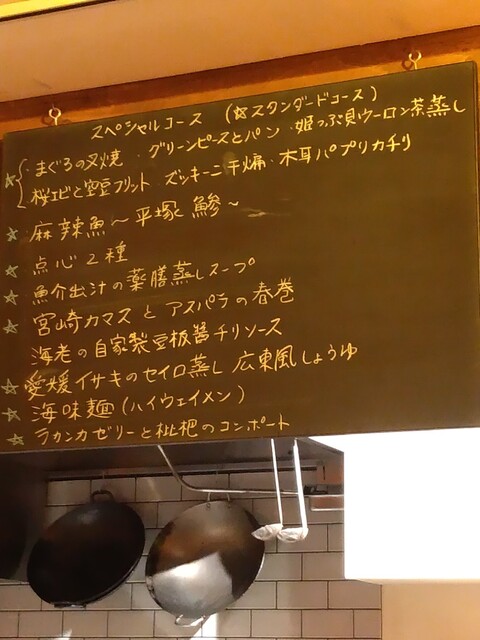 スペシャルコース (☆スタンダードコース)
☆ ・まぐろの叉焼 ・グリーンピースとパン ・姫つぶ貝ウーロン茶蒸し
桜エビと空豆フリット ・ズッキーニ干煸 ・木耳パプリカチリ
☆ 麻辣魚〜平塚 鯵〜
☆ 点心2種
☆ 魚介出汁の薬膳蒸しスープ
☆ 宮崎カマスとアスパラの春巻
海老の自家製豆板醤チリソース
☆ 愛媛イサキのセイロ蒸し 広東風しょうゆ
☆ 海味麺(ハイウェイメン)
☆ ラカンカゼリーと枇杷のコンポート